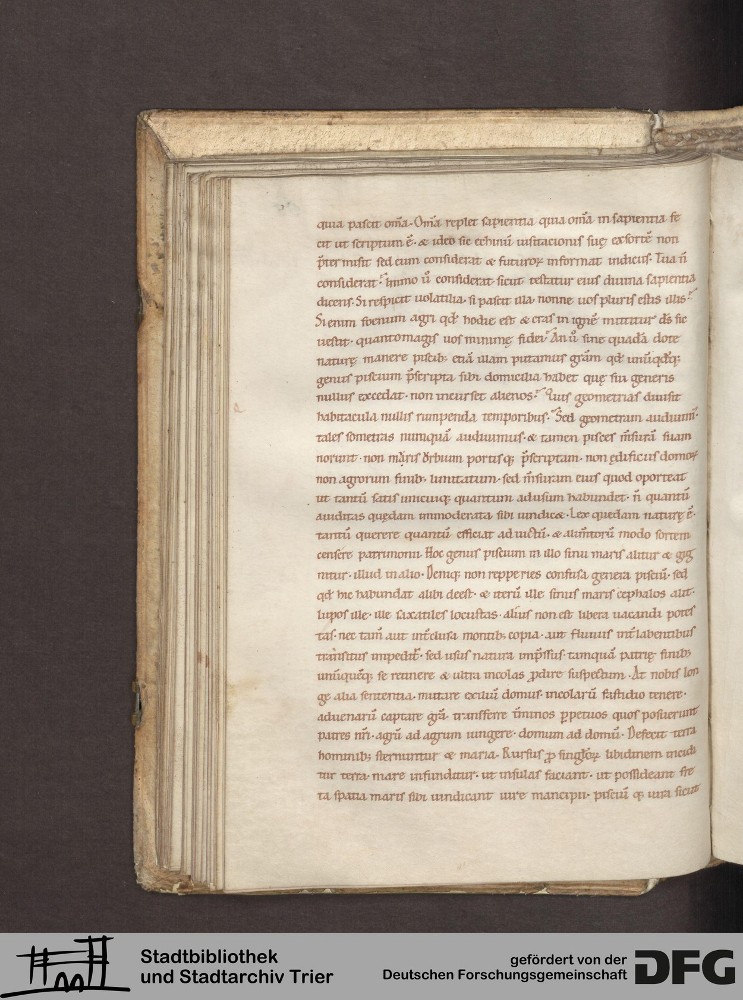 quia pascit om̄a. Om̄a replet sapientia quia om̄a in sapientia fe
cit ut scriptum ē. & ideo sic echinū uisitacionis suę exsortē non
p̄termisit sed eum considerat & futuroꝝ informat indiciis. Tua n̄
considerat? Immo ū considerat sicut testatur eius diuina sapientia
dicens. Si respicit uolatilia. si pascit illa. nonne uos pluris estis illis?
Si enim foenum agri qd̄ hodie est & cras in ignē mittitur d̄s sic
uestit. quantomagis uos minimę fidei? An ū sine quadā dote
naturę manere piscib; etiā illam putamus grām qd̄ unūqd̄q;
genus piscium p̄scripta sibi domicilia habet quę sui generis
nullus excedat. non incurset alienus? Quis geometras diuisit
habitacula nullis rumpenda temporibus? Sed geometram audiuim̄.
tales nunquā audiuimus. & tamen pisces m̄surā suam
norunt. non muris urbium portisq; p̄scriptam. non ędificiis domoꝝ
non agrorum finib; limitatum. sed m̄suram eius quod oporteat
ut tantū satis unicuiq; quantum adusum habundet. n̄ quantū
auiditas quędam immoderata sibi uindicet. Lex quedam naturę ē.
tantū querere quantū efficiat ad uictū. & alim̄torū modo sortem
censere patrimonii. Hoc genus piscium in illo sinu maris alitur & gig
nitur. illud in alio. Deniq; non repperies confusa genera pisciū. sed
qd̄ hic habundat alibi deest. & iterū ille sinus maris cephalos alit.
lupos ille. ille saxatiles locustas. alius non est libera uacandi potes
tas. nec tam̄ aut int̄clusi montib; copia. aut fluuiis int̄labentibus
transitus impedit̄. sed usus natura imp̄ssus tamquā patrię finib;
unūquēq; se teinere & ultra incolas ꝓdire suspectum. At nobis lon
ge alia sententia. mutare exiliū domus. incolarū fastidio tenere.
aduenarū captare grā. transferre t̄minos ꝑpetuos quos posuerunt
patres nr̄i. agrū ad agrum iungere. domum ad domū. Defecit terra
hominib; sternuntur & maria. Rursus ꝓ singłoꝝ libidinem incidi
tur terra. mare infunditur. ut insulas faciant. ut possideant fre
ta spatia maris sibi uindicant iure mancipii. pisciū q; iura sicut
Stadtbibliothek
und Stadtarchiv Trier
gefördert von der
Deutschen Forschungsgemeinschaft
DFG